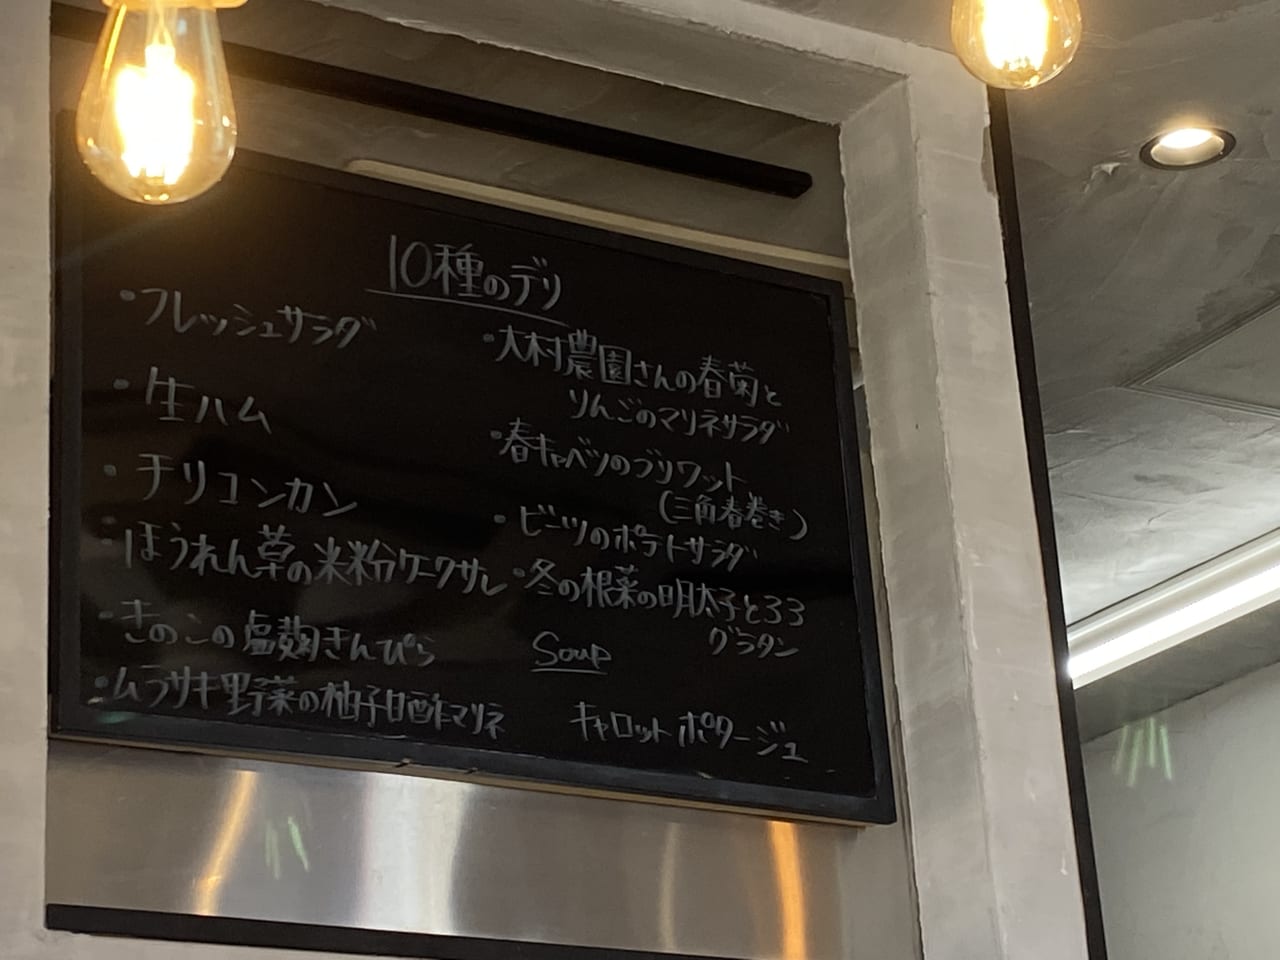 10種のデリ
・フレッシュサラダ
・生ハム
・チリコンカン
・ほうれん草の米粉ケークサレ
・きのこの塩麹きんぴら
・ムラサキ野菜の柚子甘酢マリネ
・大村農園さんの春菊と
りんごのマリネサラダ
・春キャベツのブリワット
(三角春巻き)
・ビーツのポテトサラダ
・冬の根菜の明太子と33
グラタン
Soup
キャロットポタージュ